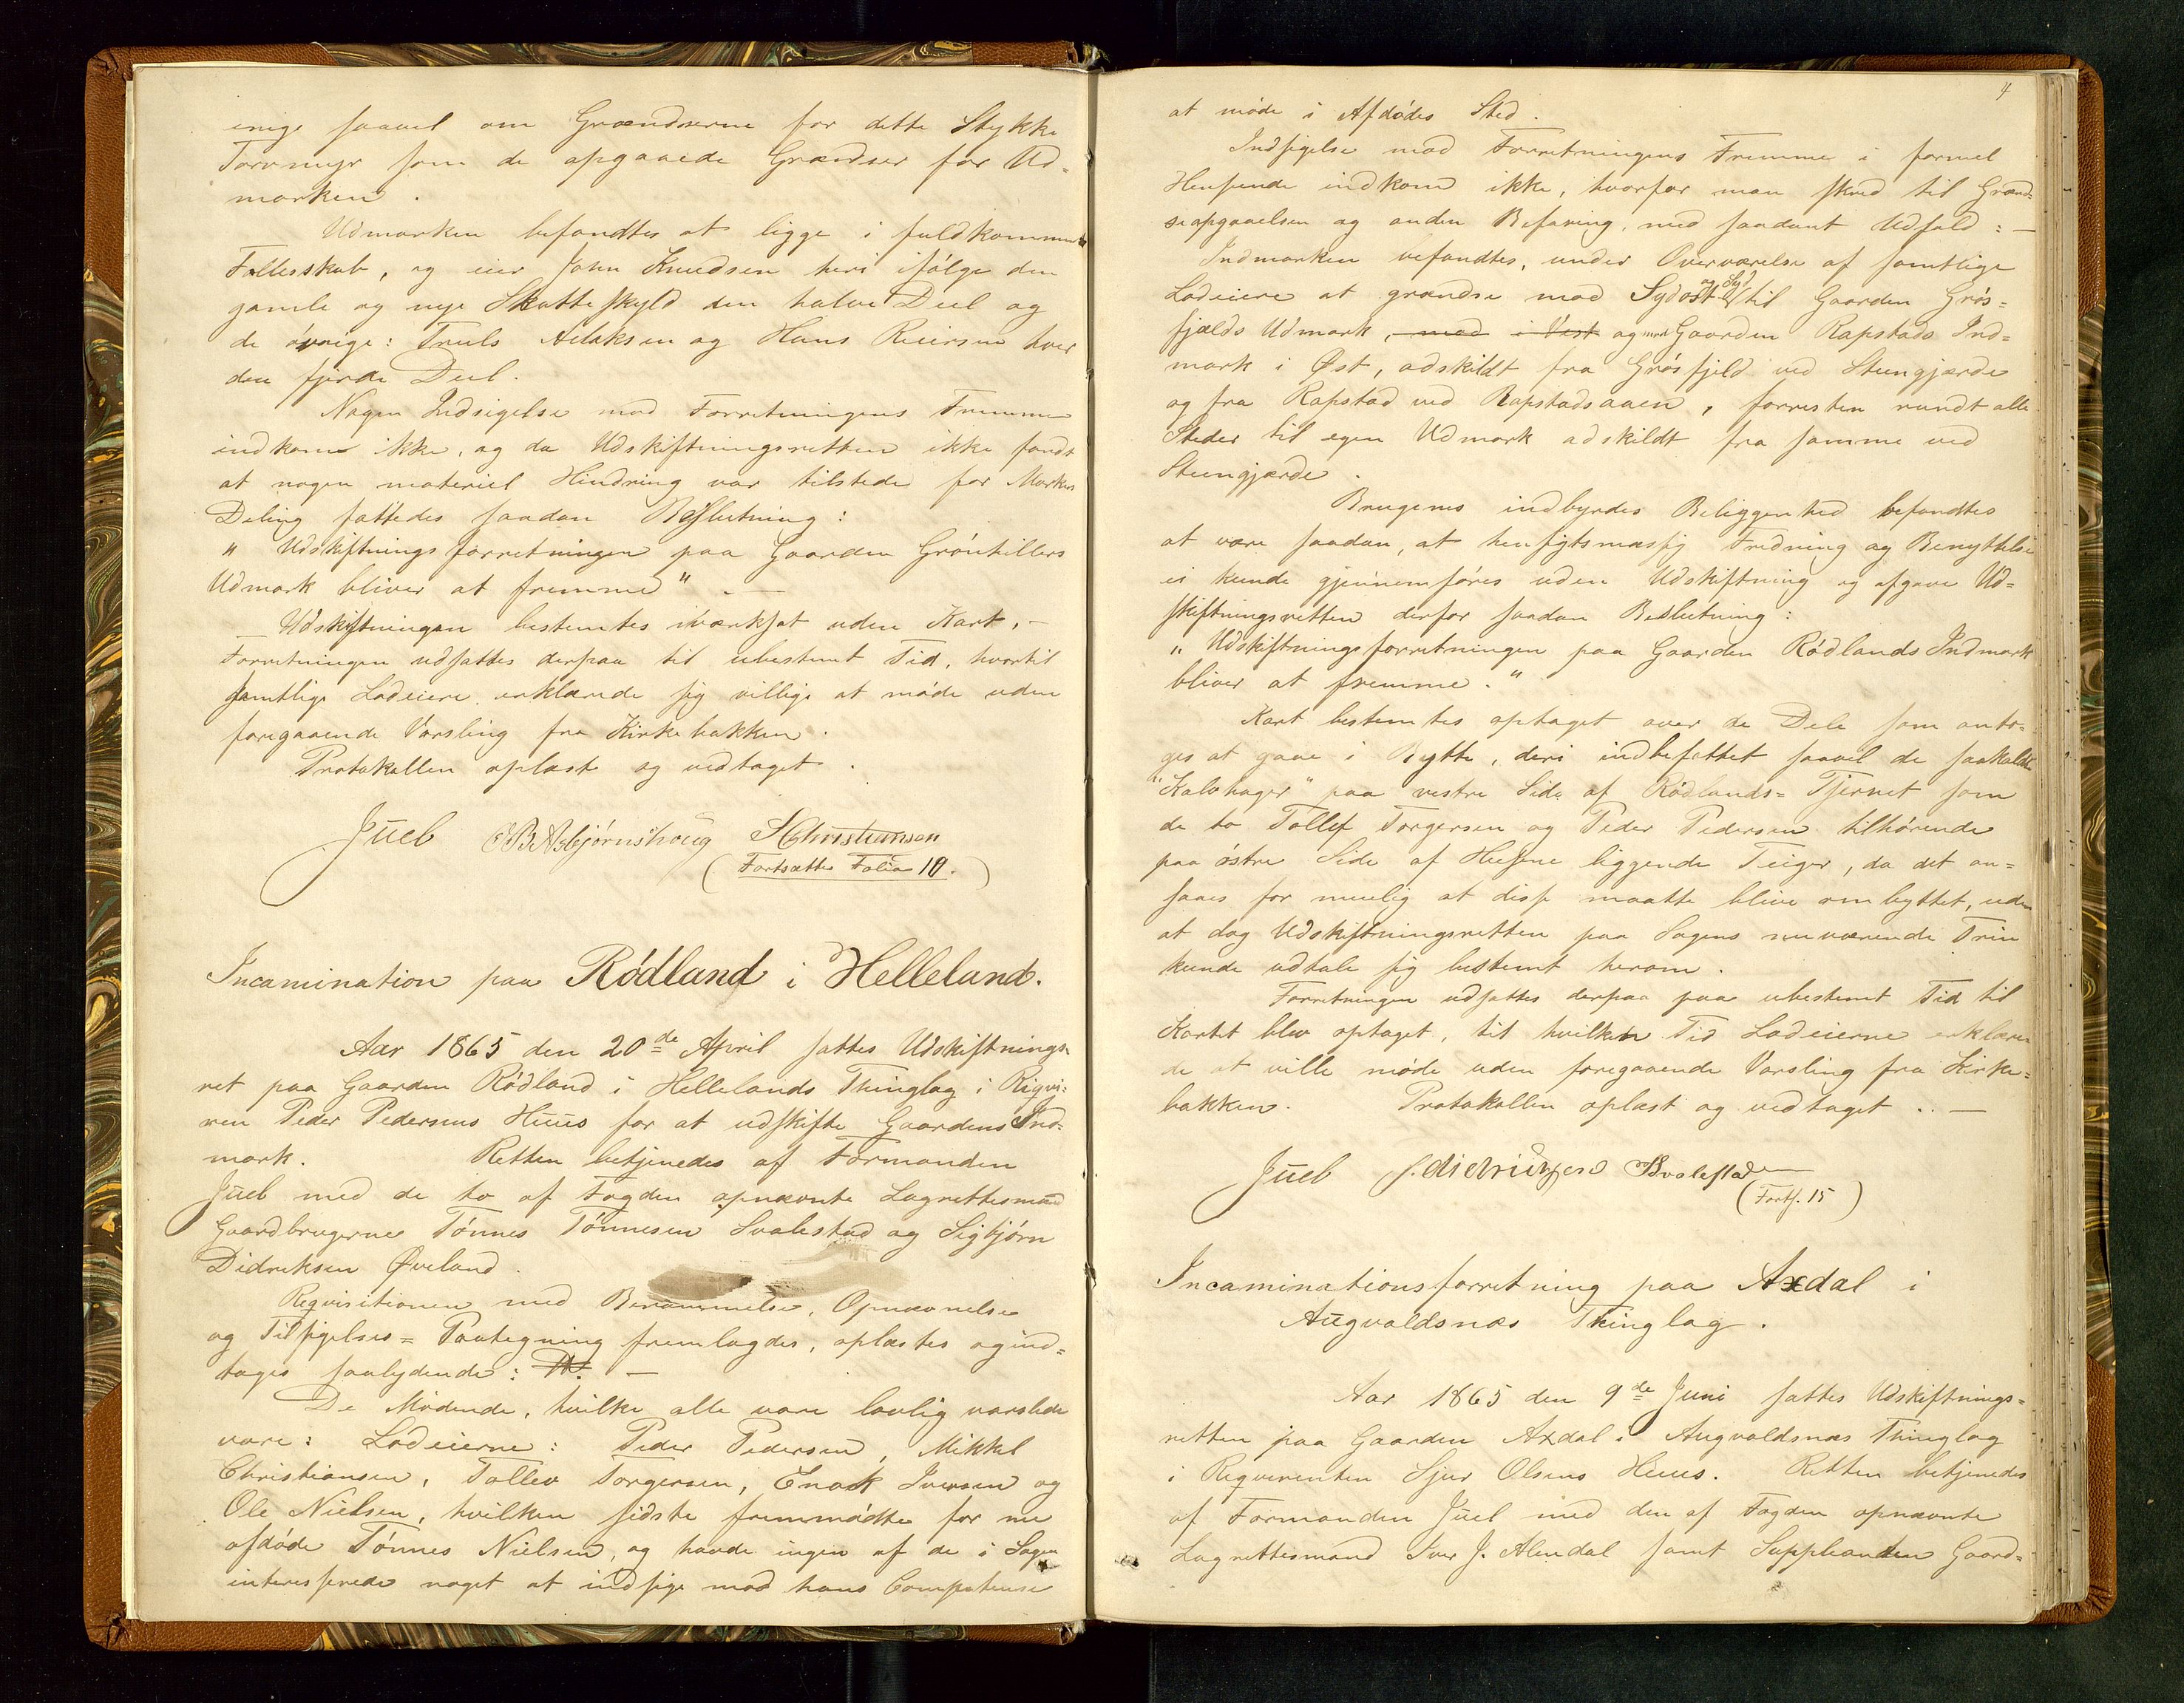 enige saavel om Grændserne for dette Stykke
Torvmyr som de opgaaede Grændser for Ud-
marken.
Udmarken befandtes at ligge i fuldkomment
Fællesskab, og eier John Knudsen heri ifølge den
gamle og nye Skatteskyld den halve Deel og
de øvrige: Truls Aslaksen og Hans Reiersen hver
den fjerde Deel.
Nogen Indsigelse mod Forretningens Fremme
indkom ikke, og da Udskiftningsretten ikke fandt
at nogen materiel Hindring var tilstede for Markens
Deling fattedes saadan Beslutning:
" Udskiftningsforretningen paa Gaarden Grønhillers
Udmark bliver at fremme" . —
Udskiftningen bestemtes iværksat uden Kart. —
Forretningen udsattes derpaa til ubestemt Tid, hvortil
samtlige Lodeiere erklærede sig villige at møde uden
foregaaende Varsling fra Kirkebakken.
Protokollen oplæst og vedtaget.
Juel B Asbjørnshoug S Christensen
( Fortsættes Folio 10. )
Incamination paa Rødland i Helleland.
Aar 1865 den 20de April sattes Udskiftnings-
ret paa Gaarden Rødland i Hellelands Thinglag i Reqvi-
ren Peder Pedersens Huus for at udskifte Gaardens Ind-
mark. Retten betjenedes af Formanden
Juel med de to af Fogden opnævnte Lagrettesmænd
Gaardbrugerne Tønnes Tønnesen Svalestad og Sigbjørn
Didriksen Øveland.
Reqvisitionen med Berammelse, Opnævnelse
og Tilsigelses= Paategning fremlagdes, oplæstes og ind=
tages saalydende: —
De Mødende, hvilke alle vare lovlig varslede
vare: Lodeierne: Peder Pedersen, Mikkel
Christiansen, Tollev Torgersen, Enok Iversen og
Ole Nielsen, hvilken sidste fremmødte for nu
afdøde Tønnes Nielsen, og havde ingen af de i Sagen
interesserede noget at indsige mod hans Competense
4
at møde i Afdødes Sted.
Indsigelse mod Forretningens Fremme i formel
Henseende indkom ikke, hvorfor man skred til Grænd-
seopgaaelsen og anden Befaring, med saadant Udfald: —
Indmarken befandtes, under Overværelse af samtlige
Lodeiere at grændse mod Sydost og Syd til Gaarden Grøs=
fjelds Udmark, med i Vest og mod Gaarden Rapstads Ind=
mark i Øst, adskildt fra Grøsfjeld ved Steengjærde
og fra Rapstad ved Rapstadsaaen, forresten rundt alle
Steder til egen Udmark adskildt fra samme ved
Steengjærde.
Brugenes indbyrdes Beliggenhed befandtes
at være saadan, at hensigtsmæssig Fredning og Benyttelse
ei kunde gjennemføres uden Udskiftning og afgave Ud=
skiftningsretten derfor saadan Beslutning:
" Udskiftningsforretningen paa Gaarden Rødlands Indmark
bliver at fremme."
Kart bestemtes optaget over de Dele som anto-
ges at gaae i Bytte, deri indbefattet saavel de saakaldte
"Kalvhager" paa vestre Side af Rødlands= Tjernet som
de to Tollef Torgersen og Peder Pedersen tilhørende
paa østre Side af Husene liggende Teiger, da det an=
saaes for muelig at disse maatte blive ombyttet, uden
at dog Udskiftningsretten paa Sagens nuværende Trin
kunde udtale sig bestemt herom.
Forretningen udsattes derpaa paa ubestemt Tid til
Kartet blev optaget, til hvilken Tid Lodeierne erklære-
de at ville møde uden foregaaende Varsling fra Kirke=
bakken. Protokollen oplæst og vedtaget. . —
Juel S. didriksen Svalestad
( Forts. 15 )
Incaminationsforretning paa Axdal i
Augvaldsnæs Thinglag.
Aar 1865 den 9de Juni sattes Udskiftnings=
retten paa Gaarden Axdal i Augvaldsnæs Thinglag
i Reqvirenten Sjur Olsens Huus. Retten betjenedes
af Formanden Juel med den af Fogden opnævnte
Lagrettesmand Iver J. Alendal samt Suppleanten Gaard=